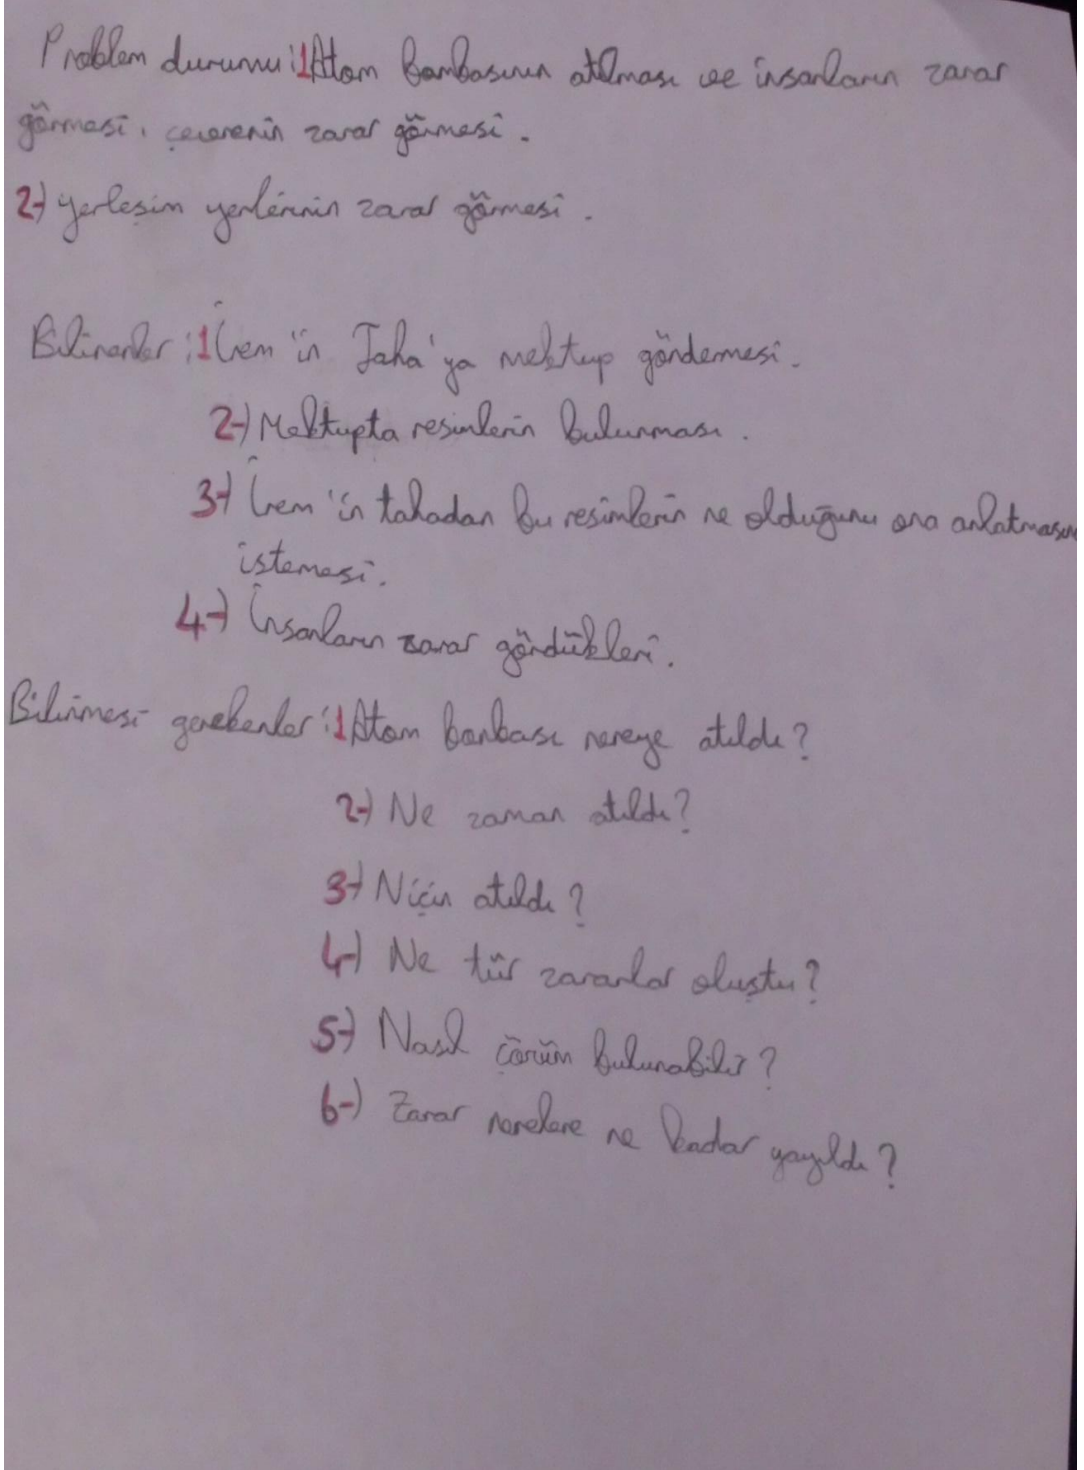 Problem durumu: 1 Atom bambasının atılması ve insanların zarar
görmesi, çevrenin zarar görmesi.
2-) yerleşim yerlerinin zarar görmesi.
Bilinenler: 1 İrem'in Taha'ya mektup göndermesi.
2-) Mektupta resimlerin bulunması.
3-) İrem'in tahadan bu resimlerin ne olduğunu ona anlatmasını
istemesi.
4-) İnsanların zarar gördükleri.
Bilinmesi gerekenler: 1 Atom banbası nereye atıldı?
2-) Ne zaman atıldı?
3-) Niçin atıldı?
4-) Ne tür zararlar oluştu?
5-) Nasıl çözüm bulunabilir?
6-) Zarar nerelere ne kadar yayıldı?